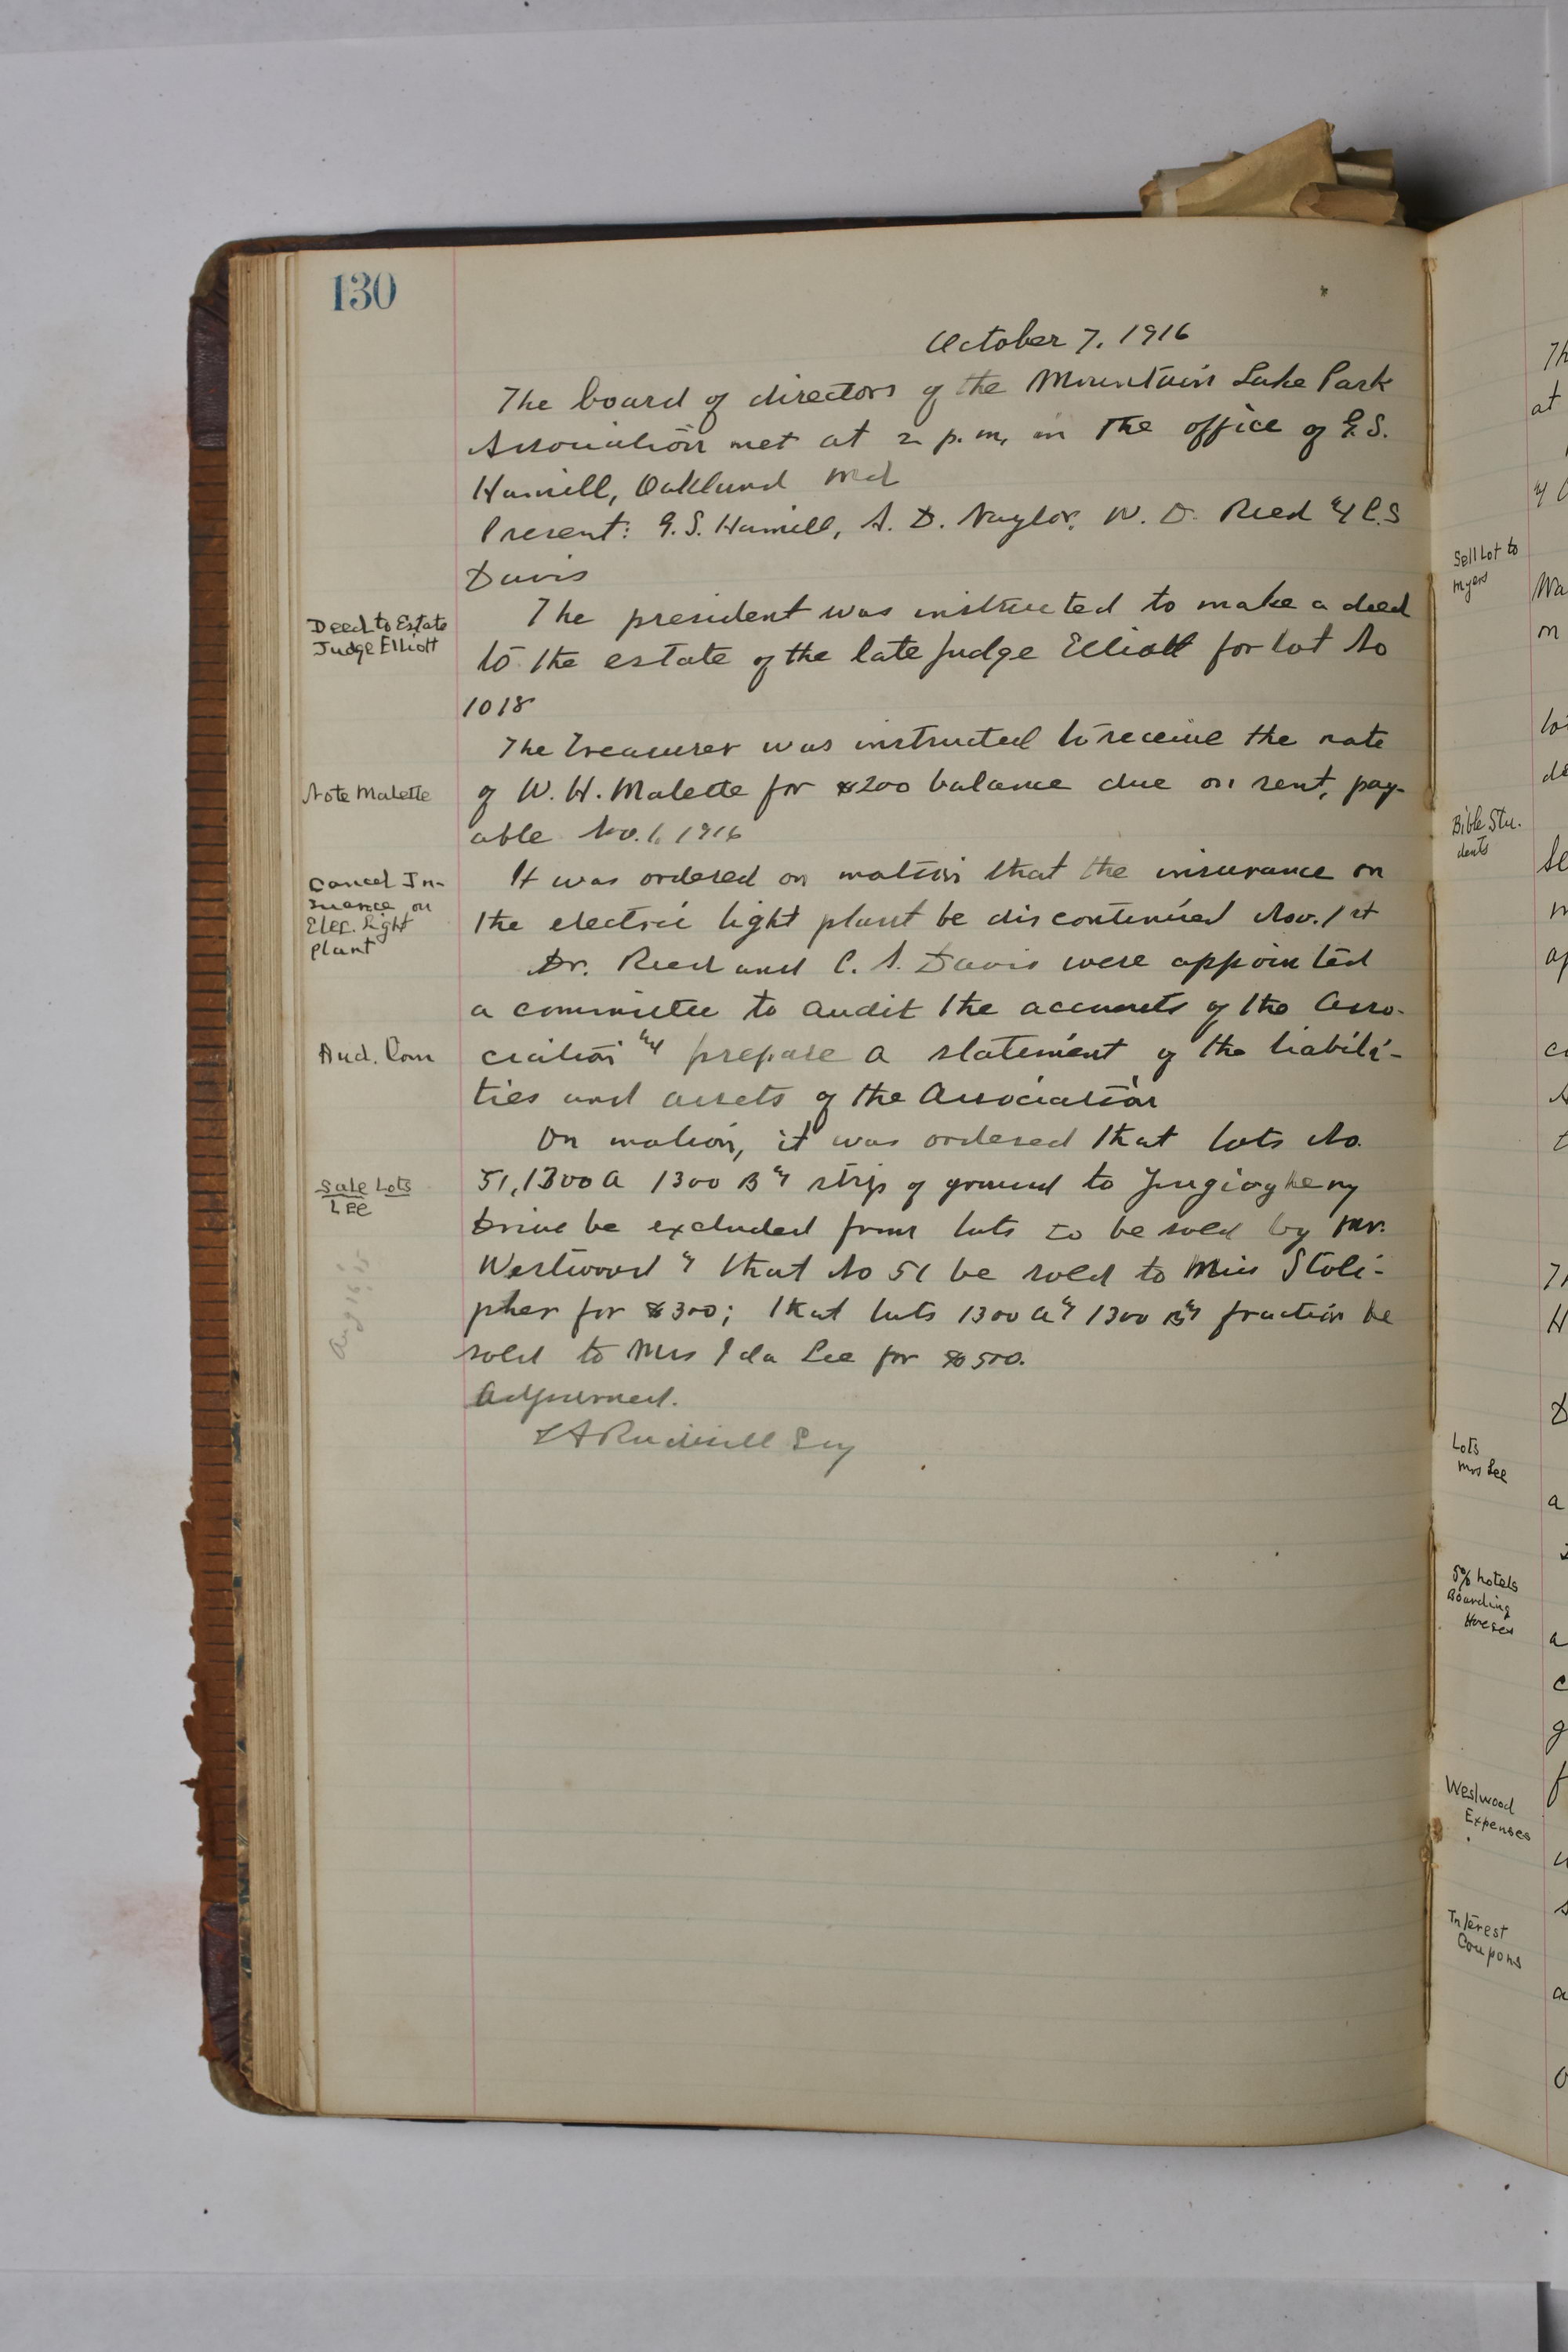 130
October 7, 1916
The board of directors of the Mountain Lake Park
Association met at 2 p.m. in the office of G.S.
Hamill, Oakland Md
Present: G.S. Hamill, A. D. Naylor, W. D. Reed & C.S
Davis
Deed to Estate
Judge Elliott
The president was instructed to make a deed
to the estate of the late Judge Elliott for lot No
1018
The Treasurer was instructed to receive the note
Note Malette
of W. H. Malette for $200 balance due on rent, pay-
able Nov. 1, 1916
Cancel In-
surance on
Elec. Light
Plant
It was ordered on motion that the insurance on
the electric light plant be discontinued Nov. 1st
Dr. Reed and C. S. Davis were appointed
a committee to audit the accounts of the Asso-
Aud. Com
ciation & prepare a statement of the liabili-
ties and assets of the Association
On motion, it was ordered that lots No.
Sale Lots
Lee
51, 1300 A 1300 B & strip of ground to Youghiogheny
Drive be excluded from lots to be sold by Mr.
Westwood & that No 51 be sold to Miss Stoli-
pher for $300; that lots 1300 A & 1300 B & fraction be
sold to Mrs Ida Lee for $500.
Adjourned.
Aug 16, 15
Sell Lot to
Myers
Bible Stu-
dents
Lots
Mrs Lee
5% hotels
Boarding
Houses
Westwood
Expenses
Interest
Coupons